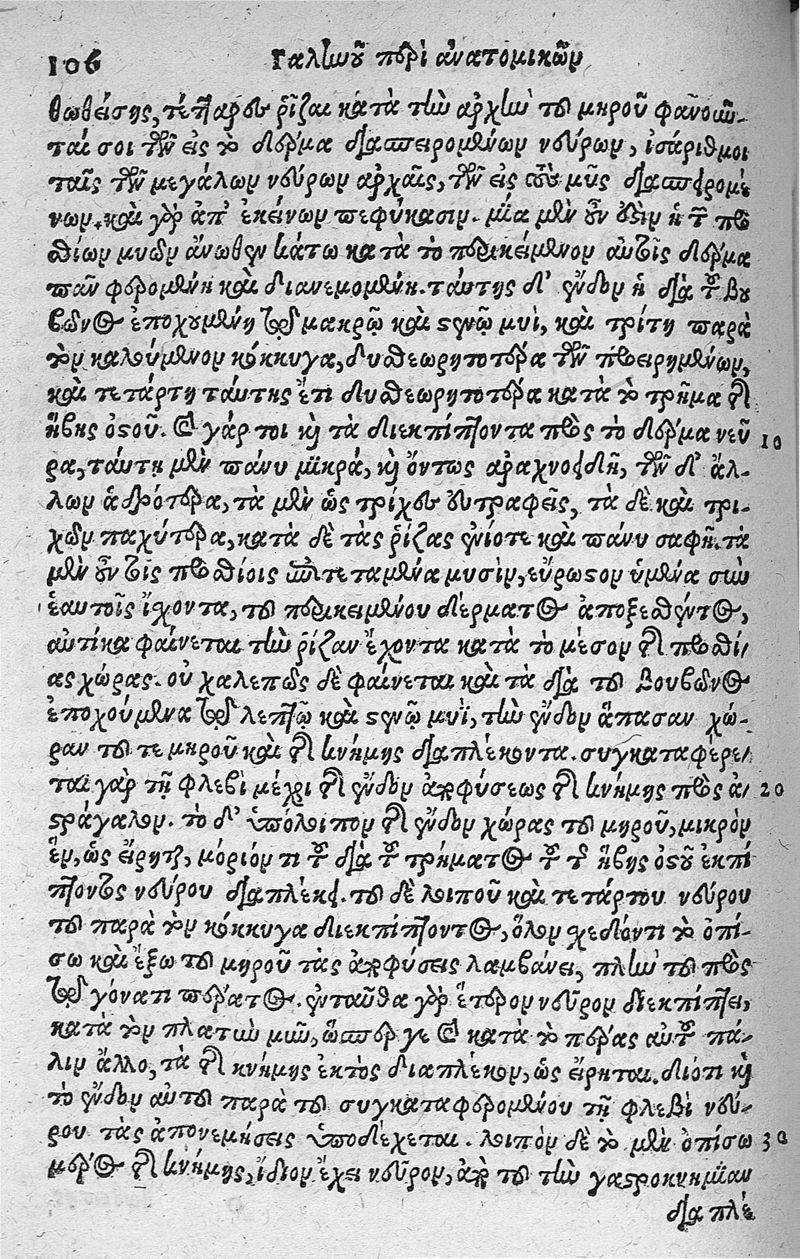 106 Γαλίωοῦ περὶ ἀνατομικῶν
θωθείσης, τέτταρες ῥίζαι κατὰ τὴν ἀρχὴν τοῦ μηροῦ φανοῦν-
ταί σοι τῶν εἰς τὸ δέρμα διασπειρομένων νεύρων, ἰσάριθμοι
ταῖς τῶν μεγάλων νεύρων ἀρχαῖς, τῶν εἰς τοὺς μῦς διασπειρομέ
νων. καὶ γὰρ ἀπ' ἐκείνων πεφύκασιν. μία μὲν οὖν ἐστὶν ἡ τῶν προ
σθίων μυῶν ἄνωθεν κάτω κατὰ τὸ περικείμενον αὐτοῖς δέρμα
πᾶν φερομένη καὶ διανεμομένη. ταύτης δ' ἔνδον ἡ διὰ τοῦ βου
βῶνος ἐποχουμένη τῷ μακρῷ καὶ στενῷ μυὶ, καὶ τρίτη παρὰ
τὸν καλούμενον κόκκυγα, δυσθεωρητοτέρα τῶν προειρημένων,
καὶ τετάρτη ταύτης ἔτι δυσθεωρητοτέρα κατὰ τὸ τρῆμα τοῦ τῆς
ἥβης ὀστοῦ. καὶ γάρ τοι καὶ τὰ διεκπίπτοντα πρὸς τὸ δέρμα νεῦ 10
ρα, ταύτῃ μὲν πάνυ μικρά, καὶ ὄντως ἀραχνοειδῆ, τῶν δ' ἄλ-
λων ἁδρότερα, τὰ μὲν ὡς τρίχες εὐτραφεῖς, τὰ δὲ καὶ τρι-
χῶν παχύτερα, κατὰ δὲ τὰς ῥίζας ἐνίοτε καὶ πάνυ σαφῆ. τὰ
μὲν οὖν τοῖς προσθίοις ἐπιτεταμένα μυσὶν, εὔρωστον ὑμένα σὺν
ἑαυτοῖς ἴχοντα, τοῦ περικειμένου δέρματος ἀποξεσθέντος,
αὐτίκα φαίνεται τὴν ῥίζαν ἔχοντα κατὰ τὸ μέσον τῆς προσθί-
ας χώρας. οὐ χαλεπῶς δὲ φαίνεται καὶ τὰ διὰ τοῦ βουβῶνος
ἐποχούμενα τῷ λεπτῷ καὶ στενῷ μυὶ, τὴν ἔνδον ἅπασαν χώ-
ραν τοῦ τε μηροῦ καὶ τῆς κνήμης διαπλέκοντα. συγκαταφέρε-
ται γὰρ τῇ φλεβὶ μέχρι τῆς ἔνδον ἀποφύσεως τῆς κνήμης πρὸς ἀ- 20
στράγαλον. τὸ δ' ὑπόλοιπον τῆς ἔνδον χώρας τοῦ μηροῦ, μικρὸν
ἓν, ὡς εἴρηται, μόριόν τι τοῦ διὰ τοῦ τρήματος τοῦ τῆς ἥβης ὀστοῦ ἐκπί
πτοντος νεύρου διαπλέκει. τοῦ δὲ λοιποῦ καὶ τετάρτου νεύρου
τοῦ παρὰ τὸν κόκκυγα διεκπίπτοντος, ὅλον σχεδόν τι τὸ ὀπί-
σω καὶ ἔξω τοῦ μηροῦ τὰς ἀποφύσεις λαμβάνει, πλὴν τοῦ πρὸς
τῷ γόνατι πέρατος. ἐνταῦθα γὰρ ἕτερον νεῦρον διεκπίπτει,
κατὰ τὸν πλατὺν μῦν, ὥσπερ γε καὶ κατὰ τὸ πέρας αὐτοῦ πά-
λιν ἄλλο, τὰ τῆς κνήμης ἐκτὸς διαπλέκον, ὡς εἴρηται. διότι καὶ
τὸ ἔνδον αὐτοῦ παρὰ τοῦ συγκαταφερομένου τῇ φλεβὶ νεύ-
ρου τὰς ἀπονεμήσεις ὑποδέχεται. λοιπὸν δὲ τὸ μὲν ὀπίσω 30
μέρος τῆς κνήμης, ἴδιον ἔχει νεῦρον, ἀπὸ τοῦ τὴν γαστροκνημίαν
διαπλέ